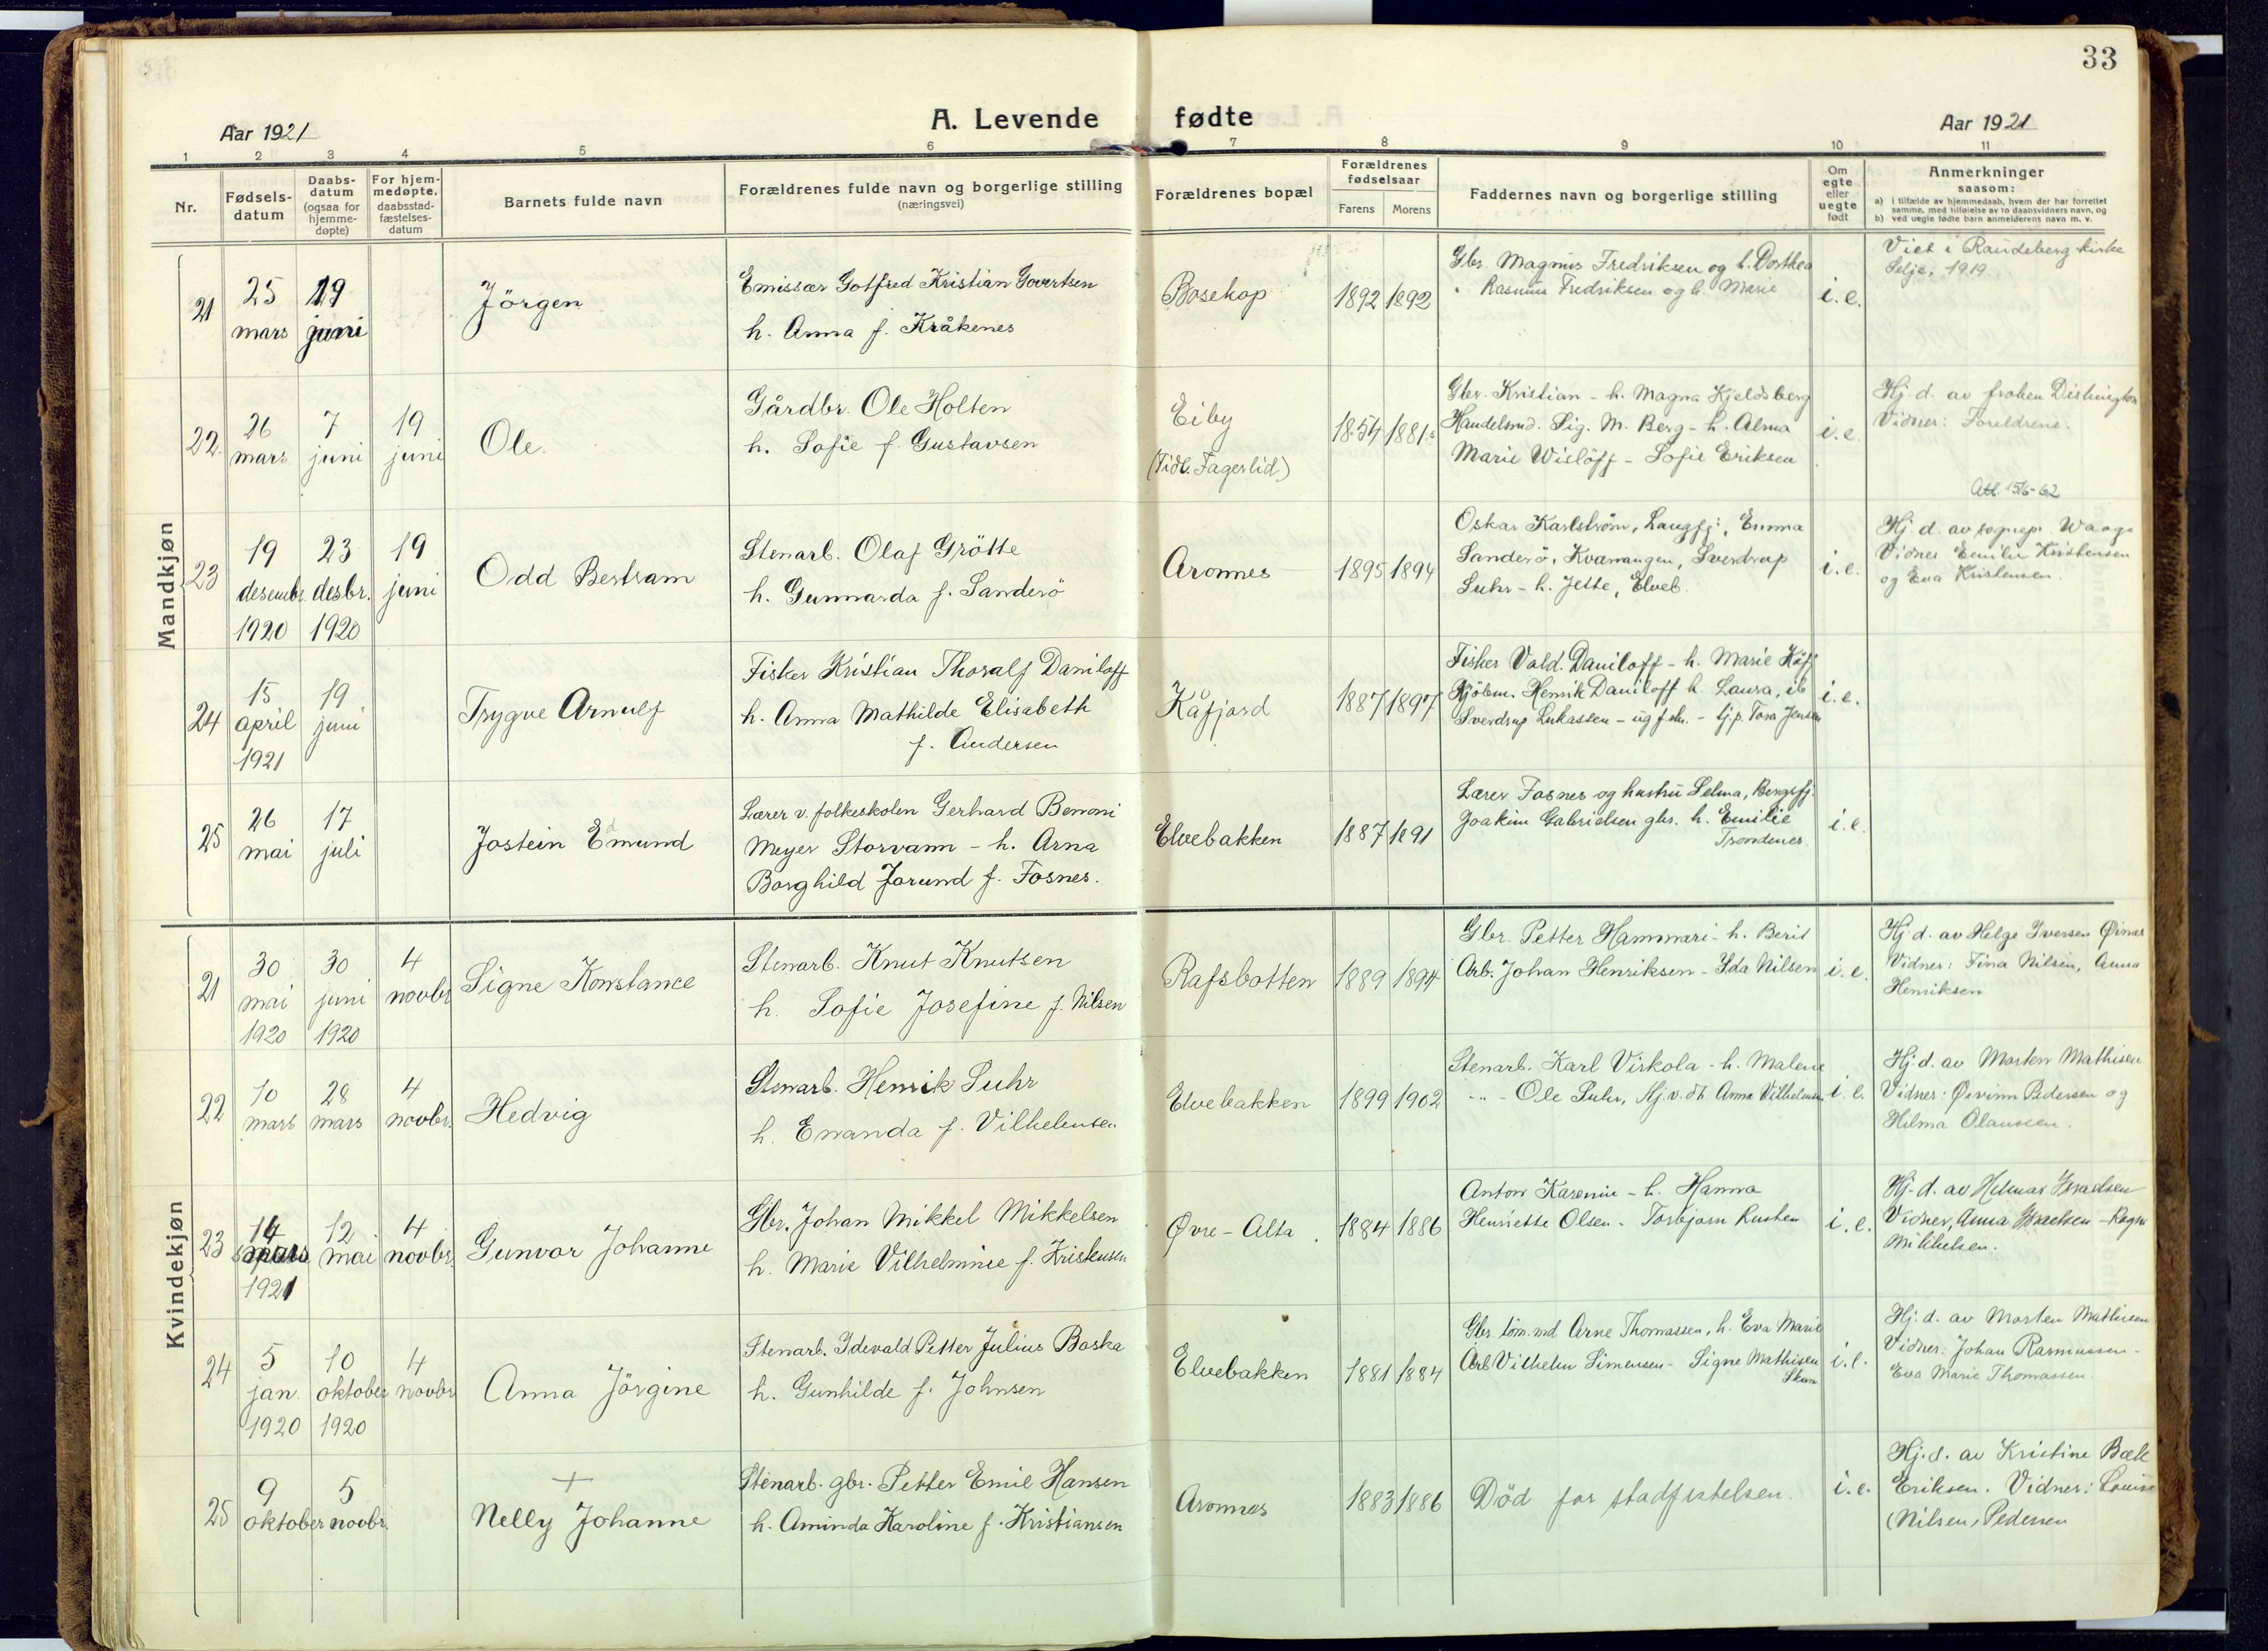 33
A. Levende fødte
Aar 1921
Aar 1921
1 2 3 4 5 6 7 8 9 10 11
Nr.
Fødsels-
datum
Daabs-
datum
(ogsaa for
hjemme-
døpte)
For hjem-
medøpte,
daabsstad-
fæstelses-
datum
Barnets fulde navn
Forældrenes fulde navn og borgerlige stilling
(næringsvei)
Forældrenes bopæl
Forældrenes
fødselsaar
Farens Morens
Faddernes navn og borgerlige stilling
Om
egte
eller
uegte
født
Anmerkninger
saasom:
a) i tilfælde av hjemmedaab, hvem der har forrettet
samme, med tilføielse av to daabsvidners navn, og
b) ved uegte fødte barn anmelderens navn m. v.
Mandkjøn
21
25
mars
19
juni
Jörgen
Emissær Gotfred Kristian Govertsen
h. Anna f. Kråkenes
Bosekop
1892 1892
Gbr. Magnus Fredriksen og h. Dorthea
" Rasmus Fredriksen og h. Marie
i. e.
Viet i Raudeberg kirke
Selje. 1919.
22
26
mars
7
juni
19
juni
Ole.
Gårdbr. Ole Holten
h. Sofie f. Gustavsen
Eiby
(Tidl. Fagerlid)
1854 1881
Gbr. Kristian - h. Magna Kjeldsberg
Handelsmd. Sig. M. Berg - h. Alma
Marie Wislöff - Sofie Eriksen
i. e.
Hj. d. av frøken Distington
Vidner: Foreldrene.
Att. 15/6-62
23
19
desembr.
1920
23
desbr.
1920
19
juni
Odd Bertram
Stenarb. Olaf Grötte
h. Gunnarda f. Sanderö
Aronnes
1895 1894
Oskar Karlström, Langfj:, Emma
Sanderö, Kvænangen, Sverdrup
Suhr - h. Jette, Elveb.
i. e.
Hj. d. av sognepr. Waage
Vidner Emilie Kristensen
og Eva Kristensen.
24
15
april
1921
19
juni
Trygve Arnulf
Fisker Kristian Thoralf Daniloff
h. Anna Mathilde Elisabeth
f. Andersen
Kåfjord
1887 1897
Fisker Vald. Daniloff - h. Marie Kåfj
Henrik Daniloff h. Laura, ib
Sverdrup Lukassen - - tj.p. Tora Jensen
i. e.
25
26
mai
17
juli
Jostein Emund
d
Lærer v. folkeskolen Gerhard Benoni
Meyer Storvann - h. Arna
Borghild Jorund f. Fosnes.
Elvebakken
1887 1891
Lærer Fosnes og hustru Selma, Bergsfj.
Joakim Gabrielsen gbr. h. Emilie
Trondenes
i. e.
Kvindekjøn
21
30
mai
1920
30
juni
1920
4
novbr
Signe Konstance
Stenarb. Knut Knutsen
h. Sofie Josefine f. Nilsen
Rafsbotten
1889 1894
Gbr. Petter Hammari - h. Berit
Arb. Johan Henriksen - Ida Nilsen
i. e.
Hj. d. av Helge Iversen
Vidner: Tina Nilsen, Anna
Henriksen
22
10
mars
28
mars
4
novbr.
Hedvig
Stenarb. Henrik Suhr
h. Ewanda f. Vilhelmsen
Elvebakken
1899 1902
Stenarb. Karl Virkola - h. Malene
- " - Ole Suhr, Anna Vilhelmsen
i. e.
Hj. d. av Morten Mathisen
Vidner: Øivinn Pedersen og
Hilma Olaussen.
23
14
mars
1921
12
mai
4
novbr.
Gunvor Johanne
Gbr. Johan Mikkel Mikkelsen
h. Marie Vilhelmine f. Kristensen
Øvre - Alta.
1884 1886
Anton Karenius - h. Hanna
Henriette Olsen - Torbjørn Kusten
i. e.
Hj. d. av Hilmar Israelsen
Vidner, Anna Israelsen - Ragn
Mikkelsen.
24
5
jan.
1920
10
oktober
1920
4
novbr
Anna Jörgine
Stenarb. Idevald Petter Julius Boska
h. Gunhilde f. Johnsen
Elvebakken
1881 1884
Gbr. töm.md Arne Thomassen, h. Eva Marie
Arb Vilhelm Simensen - Signe Mathisen
i. e.
Hj. d. av Morten Mathisen
Vidner: Johan Rasmussen -
Eva Marie Thomassen.
25
9
oktober
5
novbr.
+
Nelly Johanne
Stenarb. gbr. Petter Emil Hansen
h. Aminda Karoline f. Kristiansen
Aronnes
1883 1886
Död för stadfestelsen.
i. e.
Hj. d. av Kristine Bæk
Eriksen. Vidner: Louise
(Nilsen, Pedersen